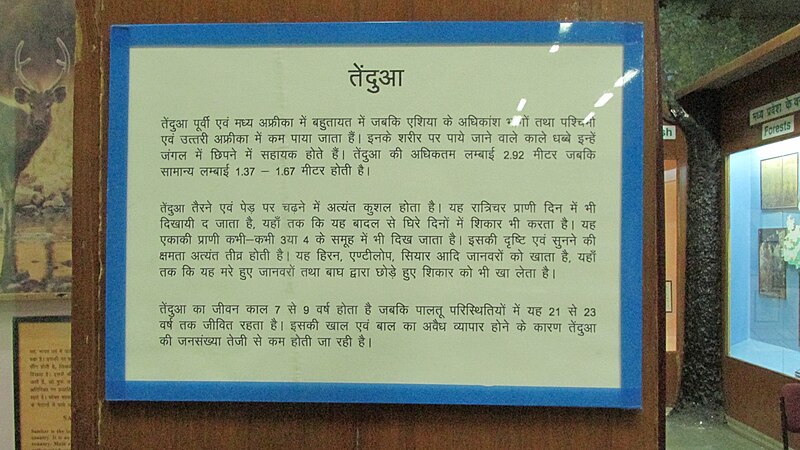 तेंदुआ
तेंदुआ पूर्वी एवं मध्य अफ्रीका में बहुतायत में जबकि एशिया के अधिकांश भागों तथा पश्चिमी
एवं उत्तरी अफ्रीका में कम पाया जाता हैं। इनके शरीर पर पाये जाने वाले काले धब्बे इन्हें
जंगल में छिपने में सहायक होते हैं। तेंदुआ की अधिकतम लम्बाई 2.92 मीटर जबकि
सामान्य लम्बाई 1.37 – 1.67 मीटर होती है।
तेंदुआ तैरने एवं पेड़ पर चढ़ने में अत्यंत कुशल होता है। यह रात्रिचर प्राणी दिन में भी
दिखायी द जाता है, यहाँ तक कि यह बादल से घिरे दिनों में शिकार भी करता है। यह
एकाकी प्राणी कभी–कभी 3या 4 के समूह में भी दिख जाता है। इसकी दृष्टि एवं सुनने की
क्षमता अत्यंत तीव्र होती है। यह हिरन, एण्टीलोप, सियार आदि जानवरों को खाता है, यहाँ
तक कि यह मरे हुए जानवरों तथा बाघ द्वारा छोड़े हुए शिकार को भी खा लेता है।
तेंदुआ का जीवन काल 7 से 9 वर्ष होता है जबकि पालतू परिस्थितियों में यह 21 से 23
वर्ष तक जीवित रहता है। इसकी खाल एवं बाल का अवैध व्यापार होने के कारण तेंदुआ
की जनसंख्या तेजी से कम होती जा रही है।
मध्य प्रदेश के
Forests